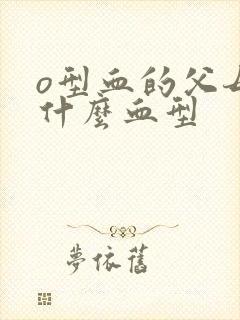 o型血的父母
什麼血型
夢依舊